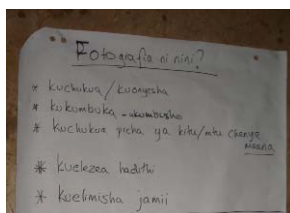 Fotografia ni nini?
* kuchukua/kuonyesha
* kukumbuka - ukumbusho
* kuchukua picha ya kitu/mtu chenye
maana
* kuelezea hadithi
* kuelimisha jamii